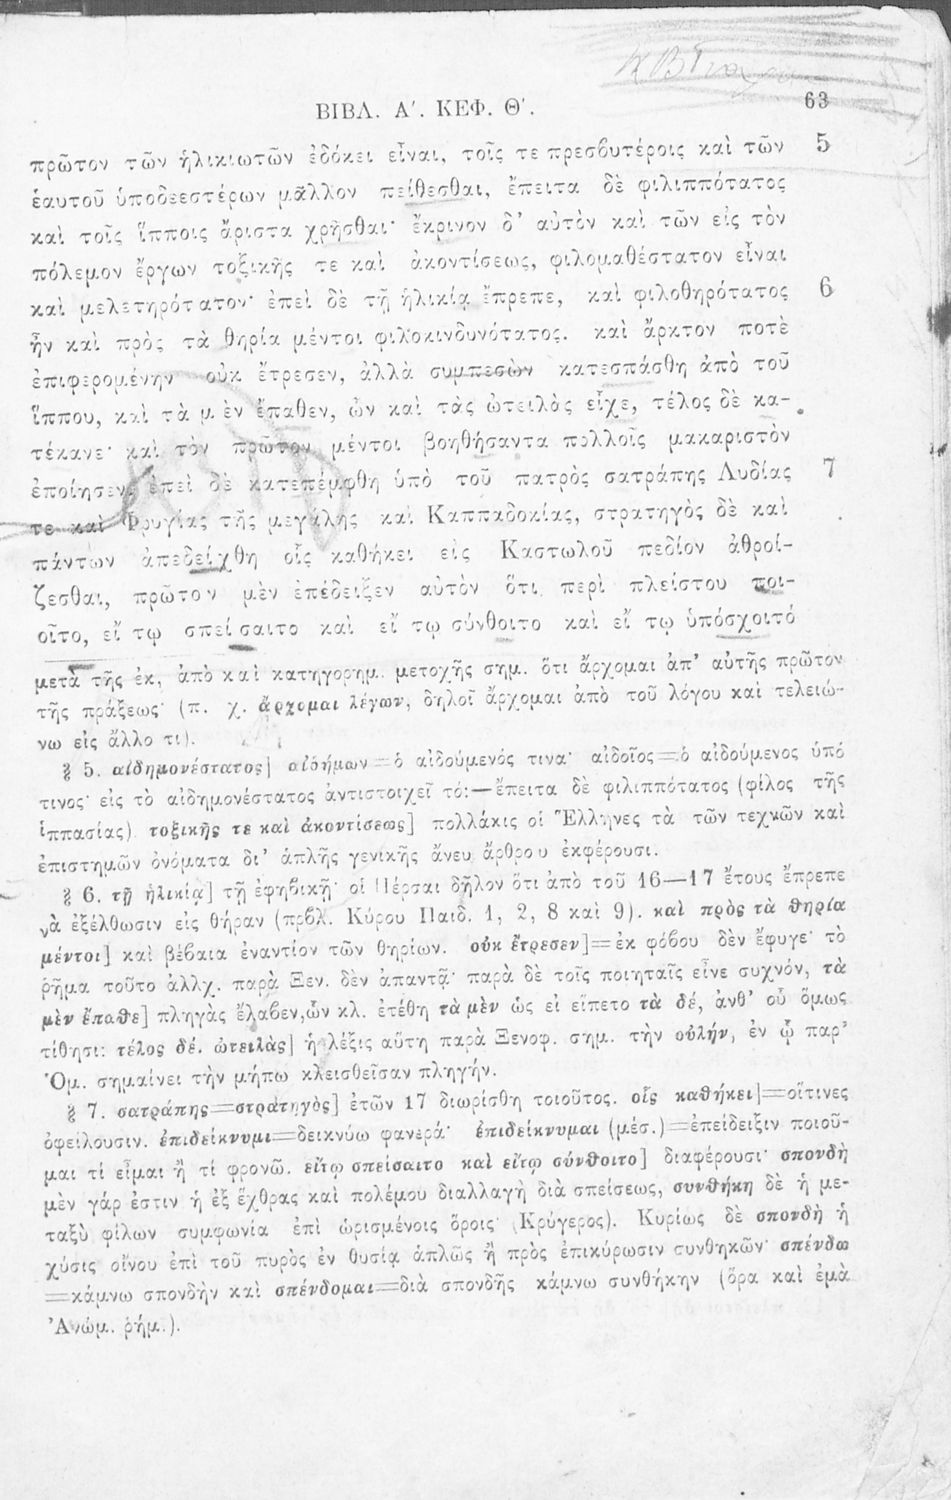 ΒΙΒΛ. Α′. ΚΕΦ. Θ′. 63
πρῶτον τῶν ἡλικιωτῶν ἐδόκει εἶναι, τοῖς τε πρεσβυτέροις καὶ τῶν 5
ἑαυτοῦ ὑποδεεστέρων μᾶλλον πείθεσθαι, ἔπειτα δὲ φιλιππότατος
καὶ τοῖς ἵπποις ἄριστα χρῆσθαι· ἔκρινον δ’ αὐτὸν καὶ τῶν εἰς τὸν
πόλεμον ἔργων τοξικῆς τε καὶ ἀκοντίσεως, φιλομαθέστατον εἶναι
καὶ μελετηρότατον· ἐπεὶ δὲ τῇ ἡλικίᾳ ἔπρεπε, καὶ φιλοθηρότατος 6
ἦν καὶ πρὸς τὰ θηρία μέντοι φιλοκινδυνότατος. καὶ ἄρκτον ποτὲ
ἐπιφερομένην οὐκ ἔτρεσεν, ἀλλὰ συμπεσὼν κατεσπάσθη ἀπὸ τοῦ
ἵππου, καὶ τὰ μὲν ἔπαθεν, ὧν καὶ τὰς ὠτειλὰς εἶχε, τέλος δὲ κα-
τέκανε· καὶ τὸν πρῶτον μέντοι βοηθήσαντα πολλοῖς μακαριστὸν
ἐποίησεν. ἐπεὶ δὲ κατεπέμφθη ὑπὸ τοῦ πατρὸς σατράπης Λυδίας 7
τε καὶ Φρυγίας τῆς μεγάλης καὶ Καππαδοκίας, στρατηγὸς δὲ καὶ
πάντων ἀπεδείχθη οἷς καθήκει εἰς Καστωλοῦ πεδίον ἀθροί-
ζεσθαι, πρῶτον μὲν ἐπέδειξεν αὐτὸν ὅτι περὶ πλείστου ποι-
οῖτο, εἴ τῳ σπείσαιτο καὶ εἴ τῳ σύνθοιτο καὶ εἴ τῳ ὑπόσχοιτό
μετὰ τῆς ἐκ, ἀπὸ καὶ κατηγορημ. μετοχῆς σημ. ὅτι ἄρχομαι ἀπ’ αὐτῆς πρῶτον
τῆς πράξεως· (π. χ. ἄρχομαι λέγων, δηλοῖ ἄρχομαι ἀπὸ τοῦ λόγου καὶ τελειώ-
νω εἰς ἄλλο τι).
§ 5. αἰδημονέστατος] αἰδήμων=ὁ αἰδούμενός τινα· αἰδοῖος=ὁ αἰδούμενος ὑπό
τινος· εἰς τὸ αἰδημονέστατος ἀντιστοιχεῖ τό:—ἔπειτα δὲ φιλιππότατος (φίλος τῆς
ἱππασίας). τοξικῆς τε καὶ ἀκοντίσεως] πολλάκις οἱ Ἕλληνες τὰ τῶν τεχνῶν καὶ
ἐπιστημῶν ὀνόματα δι’ ἁπλῆς γενικῆς ἄνευ ἄρθρου ἐκφέρουσι.
§ 6. τῇ ἡλικίᾳ] τῇ ἐφηβικῇ· οἱ Πέρσαι δῆλον ὅτι ἀπὸ τοῦ 16—17 ἔτους ἔπρεπε
νὰ ἐξέλθωσιν εἰς θήραν (πρβλ. Κύρου Παιδ. 1, 2, 8 καὶ 9). καὶ πρὸς τὰ θηρία
μέντοι] καὶ βέβαια ἐναντίον τῶν θηρίων. οὐκ ἔτρεσεν]=ἐκ φόβου δὲν ἔφυγε· τὸ
ῥῆμα τοῦτο ἀλλχ. παρὰ Ξεν. δὲν ἀπαντᾷ· παρὰ δὲ τοῖς ποιηταῖς εἶνε συχνόν, τὰ
μὲν ἔπαθε] πληγὰς ἔλαβεν, ὧν κλ. ἐτέθη τὰ μὲν ὡς εἰ εἵπετο τὰ δέ, ἀνθ’ οὗ ὅμως
τίθησι: τέλος δέ. ὠτειλὰς] ἡ λέξις αὕτη παρὰ Ξενοφ. σημ. τὴν οὐλήν, ἐν ᾧ παρ’
Ὁμ. σημαίνει τὴν μήπω κλεισθεῖσαν πληγήν.
§ 7. σατράπης=στρατηγὸς] ἐτῶν 17 διωρίσθη τοιοῦτος. οἷς καθήκει]=οἵτινες
ὀφείλουσιν. ἐπιδείκνυμι=δεικνύω φανερά· ἐπιδείκνυμαι (μέσ.)=ἐπείδειξιν ποιοῦ-
μαι τί εἶμαι ἢ τί φρονῶ. εἴτῳ σπείσαιτο καὶ εἴτῳ σύνθοιτο] διαφέρουσι· σπονδὴ
μὲν γάρ ἐστιν ἡ ἐξ ἔχθρας καὶ πολέμου διαλλαγὴ διὰ σπείσεως, συνθήκη δὲ ἡ με-
ταξὺ φίλων συμφωνία ἐπὶ ὡρισμένοις ὅροις (Κρύγερος). Κυρίως δὲ σπονδὴ ἡ
χύσις οἴνου ἐπὶ τοῦ πυρὸς ἐν θυσίᾳ ἁπλῶς ἢ πρὸς ἐπικύρωσιν συνθηκῶν· σπένδω
=κάμνω σπονδὴν καὶ σπένδομαι=διὰ σπονδῆς κάμνω συνθήκην (ὅρα καὶ ἐμὰ
Ἀνώμ. ῥήμ.).